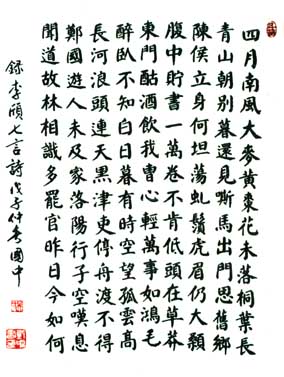 四月南風大麥黃棗花未落桐葉長
青山朝別暮還見嘶馬出門思舊鄉
陳侯立身何坦蕩虬鬚虎眉仍大顙
腹中貯書一萬卷不肯低頭在草莽
東門酤酒飲我曹心輕萬事如鴻毛
醉臥不知白日暮有時空望孤雲高
長河浪頭連天黑津吏停舟渡不得
鄭國遊人未及家洛陽行子空嘆息
聞道故林相識多罷官昨日今如何
錄李頎七言詩戊子仲春國中